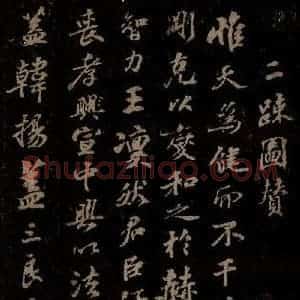 二疎圖贊
惟天為健而不干
剛克以燮和之於赫
智力王凜然君臣
喪孝興宣中興以法
蓋韓揚蓋三良
Shufaziliao.com